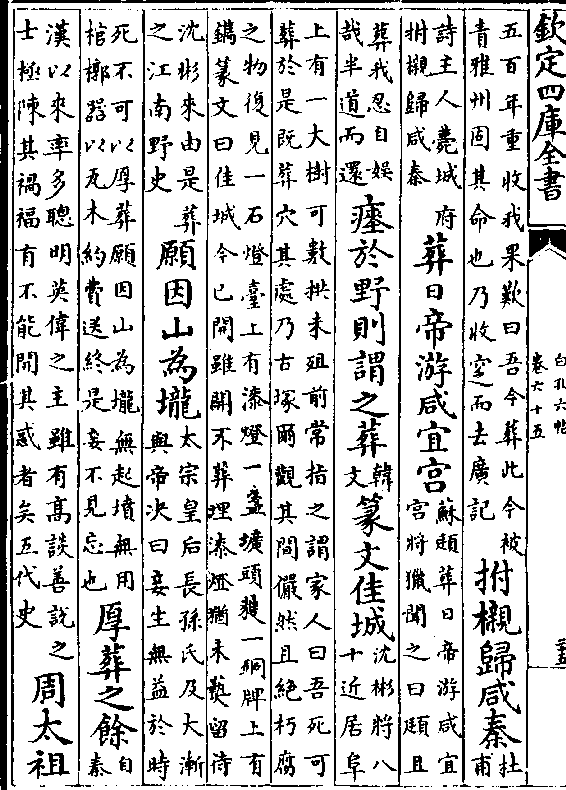 欽定四庫全書
白孔六帖
卷六十五
五百年重收我果歎曰吾今葬此今被
青雅州固其命也乃收窆而去廣記
拊櫬歸咸秦
杜
甫
詩主人薨城府
拊櫬歸咸秦
葬日帝游咸宜宮
蘇頲葬日帝游咸宜
宮將獵聞之曰頲且
葬我忍自娛
哉半道而還
瘞於野則謂之葬
韓
文
篆文佳城
沈彬將八
十近居阜
上有一大樹可數拱未殂前常指之謂家人曰吾死可
葬於是既葬穴其處乃古塚爾觀其間儼然且絕朽腐
之物復見一石燈臺上有漆燈一盞壙頭獲一銅牌上有
鐫篆文曰佳城今已開雖開不葬埋漆燈猶未爇留待
沈彬來由是葬
之江南野史
願因山為壠
太宗皇后長孫氏及大漸
與帝決曰妾生無益於時
死不可以厚葬願因山為壠無起墳無用
棺槨器以瓦木約費送終是妾不見忘也
厚葬之餘
自
秦
漢以來率多聰明英偉之主雖有高談善說之
士極陳其禍福有不能開其惑者矣五代史
周太祖